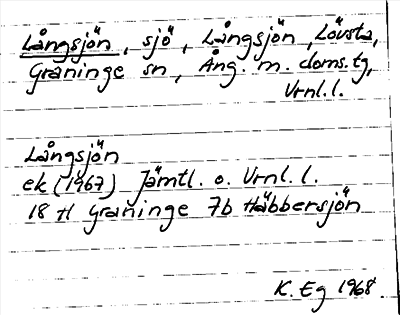 Långsjön, sjö, Långsjön, Lövsta,
Graninge sn, Ång. m. doms.tg,
Vrnl.l.
Långsjön
ek (1967) Jämtl. o. Vrnl. l.
18 H Graninge 7b Häbbersjön
K. Eg 1968